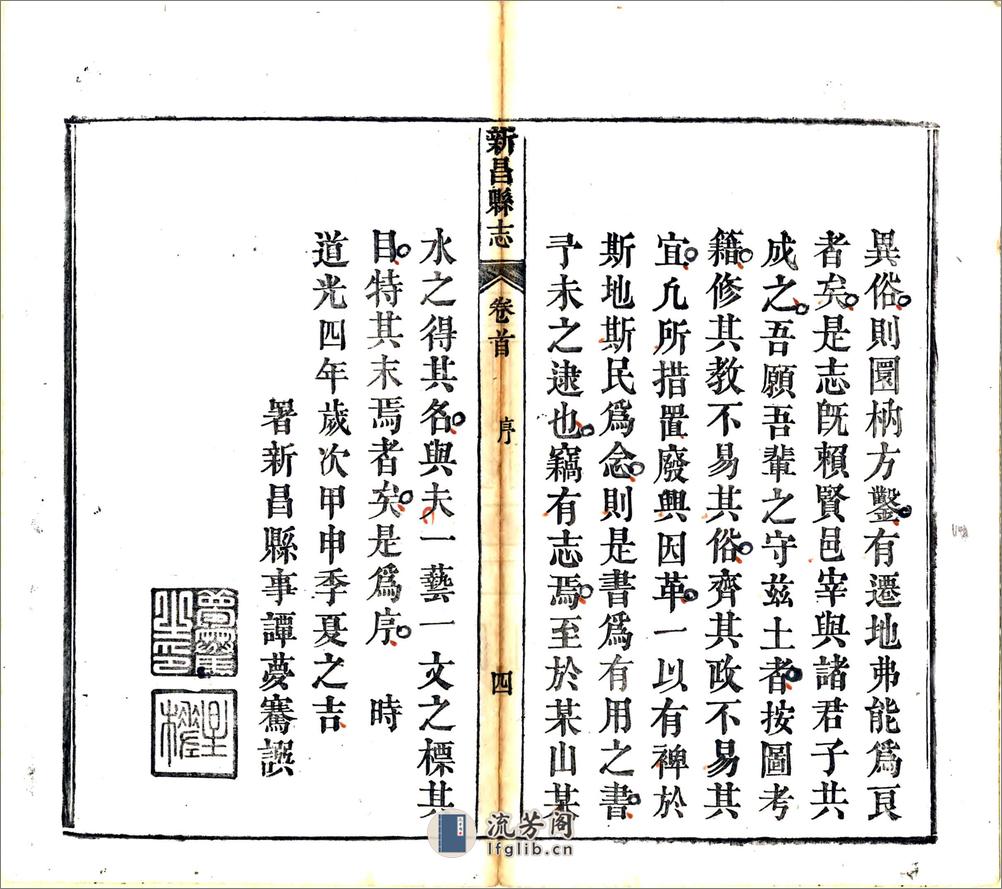 異俗則圜枘方鑿有遷地弗能爲良
者矣是志旣賴賢邑宰與諸君子共
成之吾願吾輩之守兹土者按圖考
籍修其教不易其俗齊其政不易其
宜凡所措置廢興因革一以有裨於
斯地斯民爲念則是書爲有用之書
予未之逮也竊有志焉至於某山某
新昌縣志 卷首 序 四
水之得其名與夫一藝一文之標其
目特其末焉者矣是爲序 時
道光四年歲次甲申季夏之吉
署新昌縣事譚夢騫譔
流芳阁
lfglib.cn